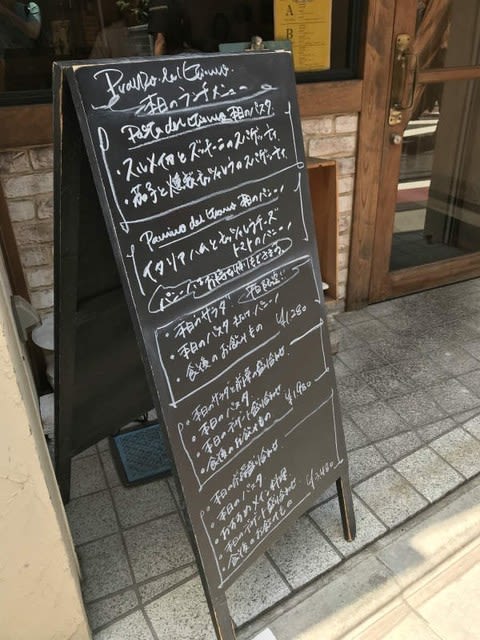 Pranzo del Giorno
本日のランチメニュー
Pasta del Giorno 本日のパスタ
・スルメイカとズッキーニのスパゲッティ
・茄子と燻製モッツァレラのスパゲッティ
Panino del Giorno 本日のパニーノ
イタリアハムとモッツァレラチーズ
トマトのパニーノ
パニーノお持ち帰りもできます
・本日のサラダ
・本日のパスタ又はパニーノ
・食後のお飲みもの ¥1,280
・本日のサラダと前菜の盛り合わせ
・本日のパスタ
・本日のデザート盛り合わせ
・食後のお飲みもの ¥1,980
・本日の前菜盛り合わせ
・本日のパスタ
・おすすめメイン料理
・本日のデザート盛り合わせ
・食後のお飲みもの
A
B